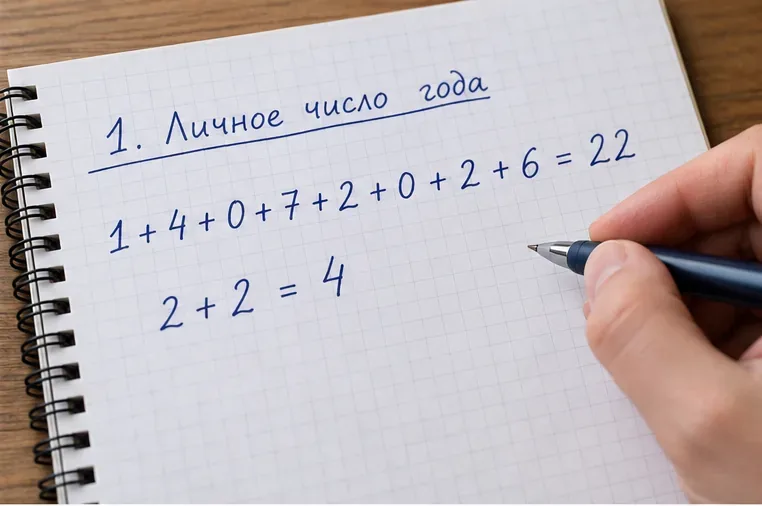 1. Личное число года
1+4+0+7+2+0+2+6=22
2+2=4